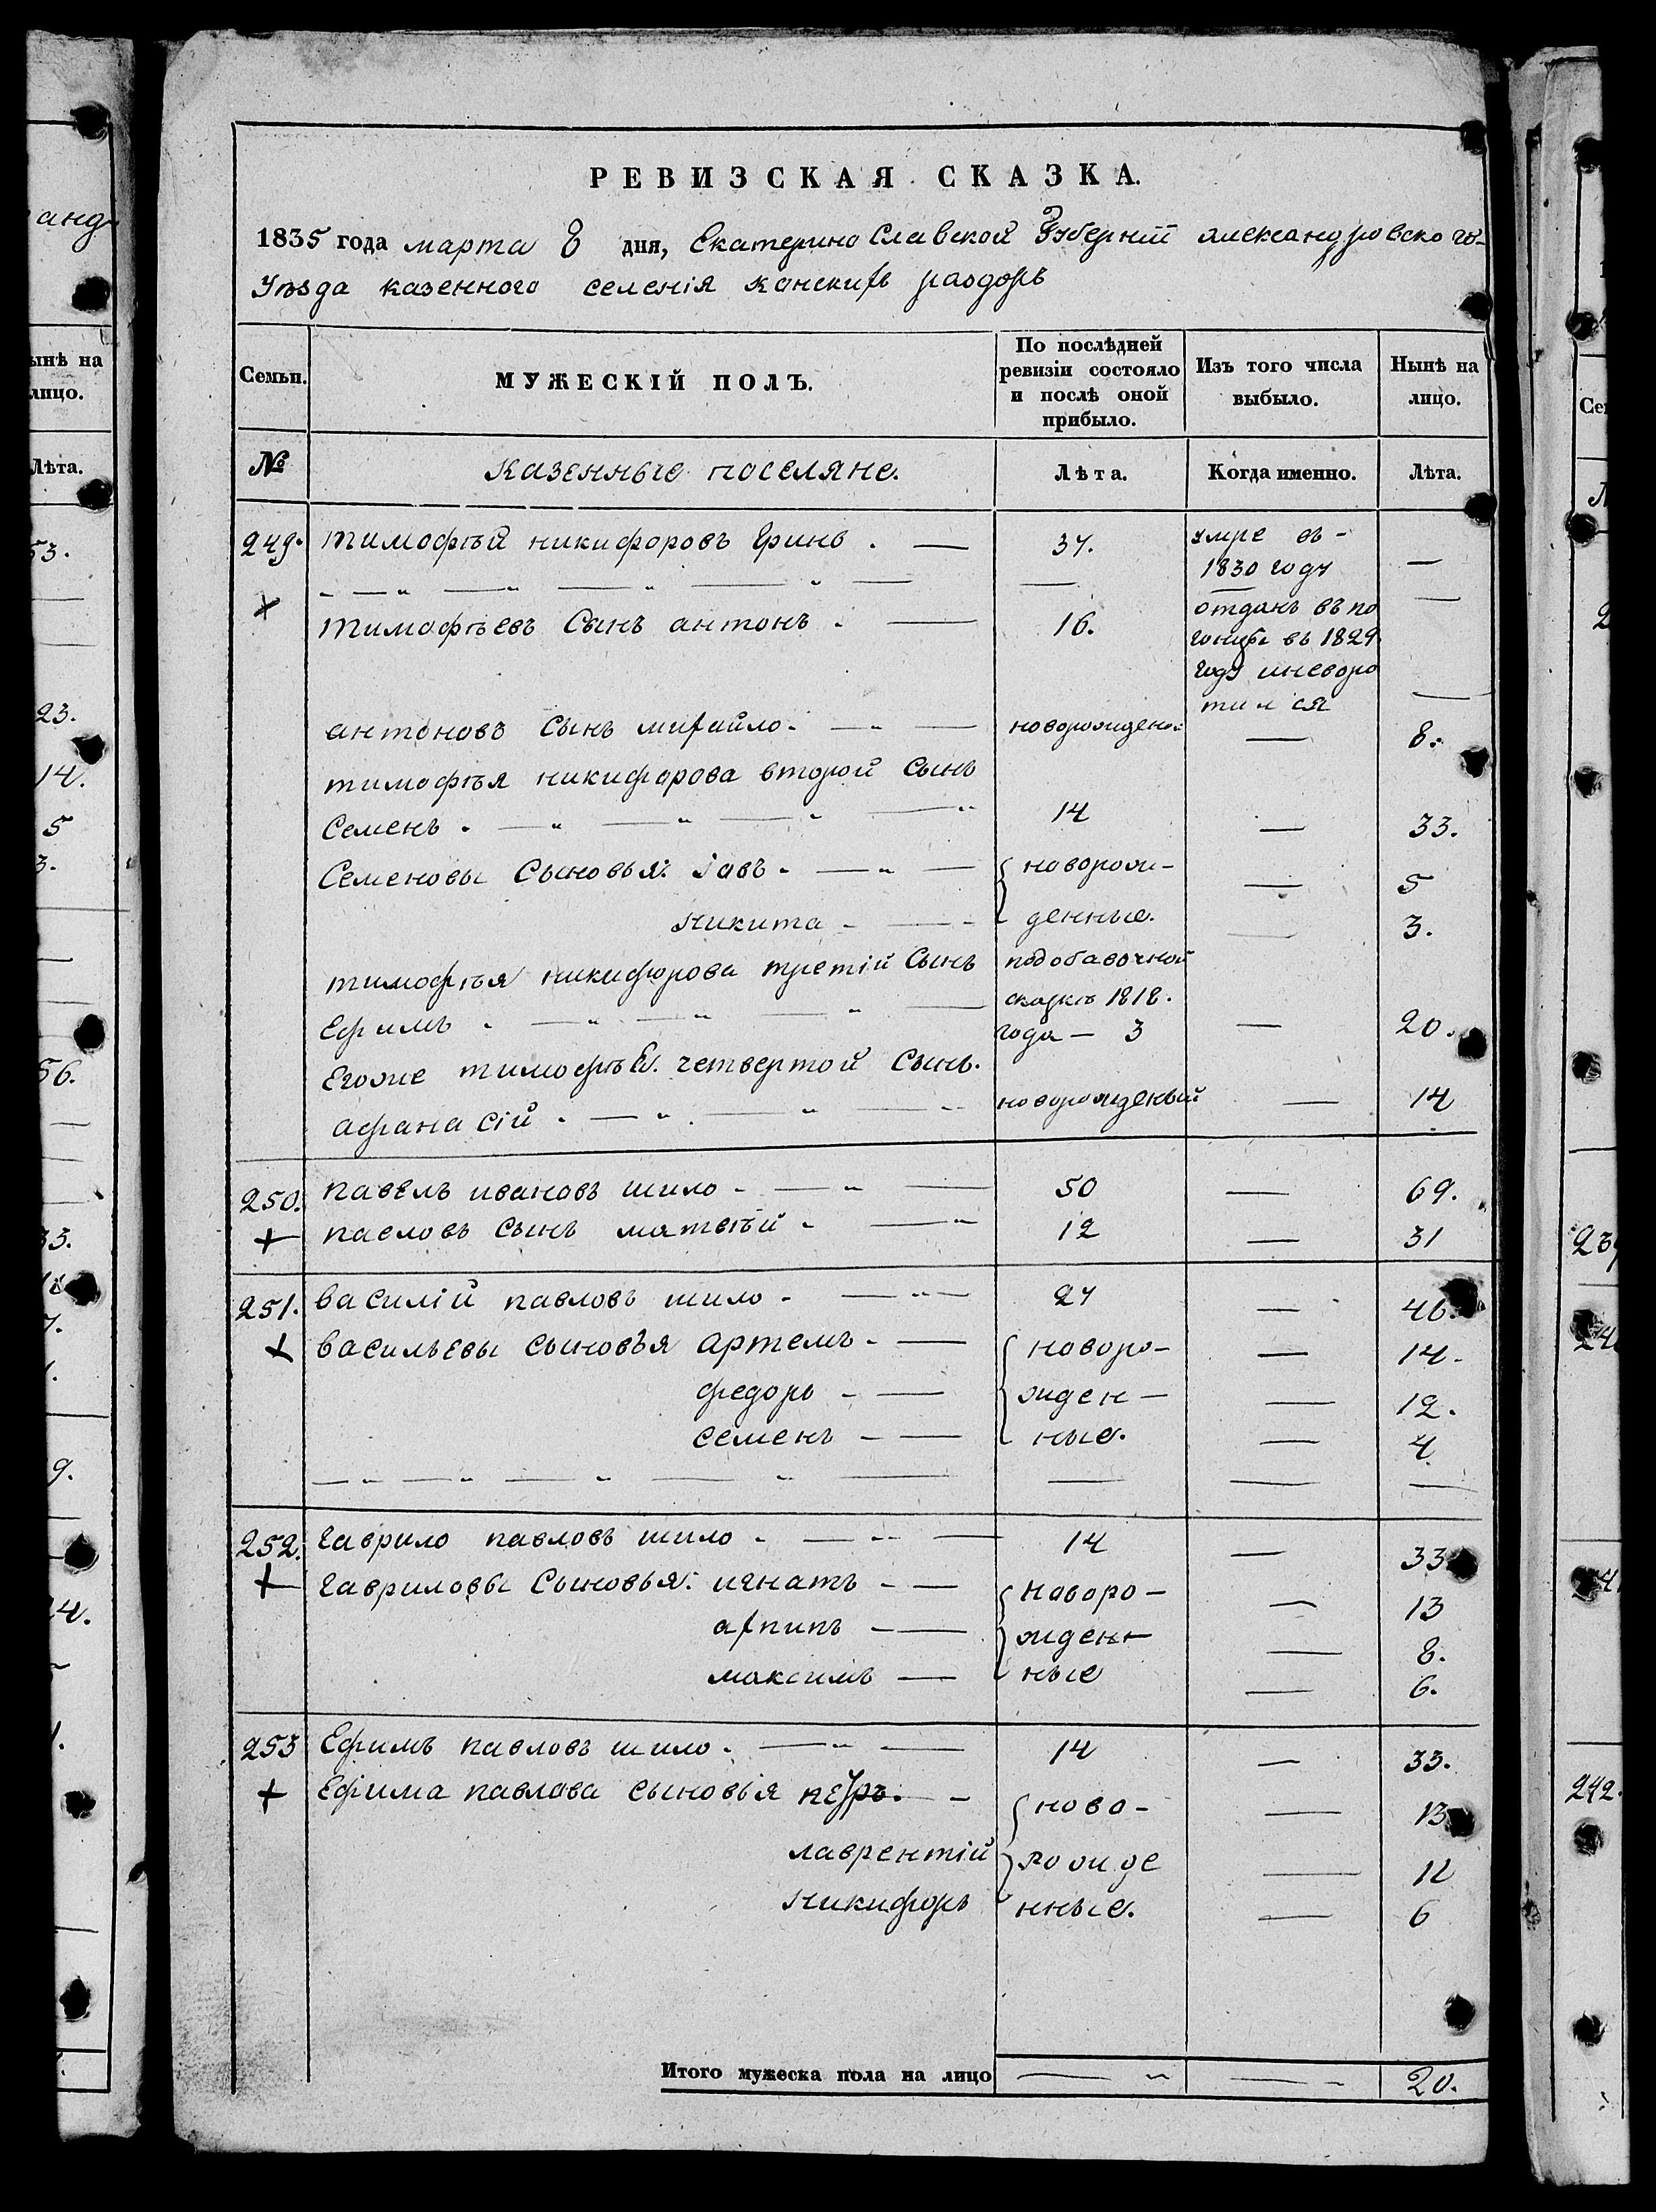 РЕВИЗСКАЯ СКАЗКА.
1835 года марта 8 дня, Екатеринославской Губерніи александровского
Уѣзда казенного селенія конскихъ раздоръ
Семьи. МУЖЕСКІЙ ПОЛЪ. По послѣдней ревизіи состояло и послѣ оной прибыло. Изъ того числа выбыло. Нынѣ на лицо.
№ Казенные поселяне. Лѣта. Когда именно. Лѣта.
249. тимофѣй никифоровъ Гринь. — 37. умре въ — —
1830 году
тимофѣевъ Сынъ антонъ. — 16. отданъ въ по —
гонцы въ 1829
году иневоро
тился —
антоновъ сынъ михайло. — новорожденой — 8.
тимофѣя никифорова второй Сынъ
Семенъ. — 14 — 33.
Семеновы Сыновья: іовъ. — новорож- — 5
никита — денные. — 3.
тимофѣя никифорова третій Сынъ подобавочной
сказкѣ 1818.
Ефимъ. — года — 3 — 20.
Егоже тимофѣя четвертой Сынъ.
афанасій. — новорожденый — 14
250. павелъ ивановъ шило — 50 — 69.
+ павловъ сынъ матвѣй — 12 — 31
251. василій павловъ шило — 27 — 46.
+ васильевы сыновья артемъ — новоро- — 14.
федоръ — жден- — 12.
семенъ — ные. — 4
252. гаврило павловъ шило — 14 — 33
+ гавриловы Сыновья: игнатъ — новоро- — 13
архипъ — жден- — 8.
максимъ — ные — 6.
253 Ефимъ павловъ шило. — 14 — 33.
+ Ефима павлова сыновья петръ. — ново- — 13
лаврентій рожде — 11
никифоръ нные. — 6
Итого мужеска пола на лицо — — 20.
анд
ынѣ на
лицо.
Лѣта.
53.
23.
14.
5
3.
56.
33.
9.
4.
242.